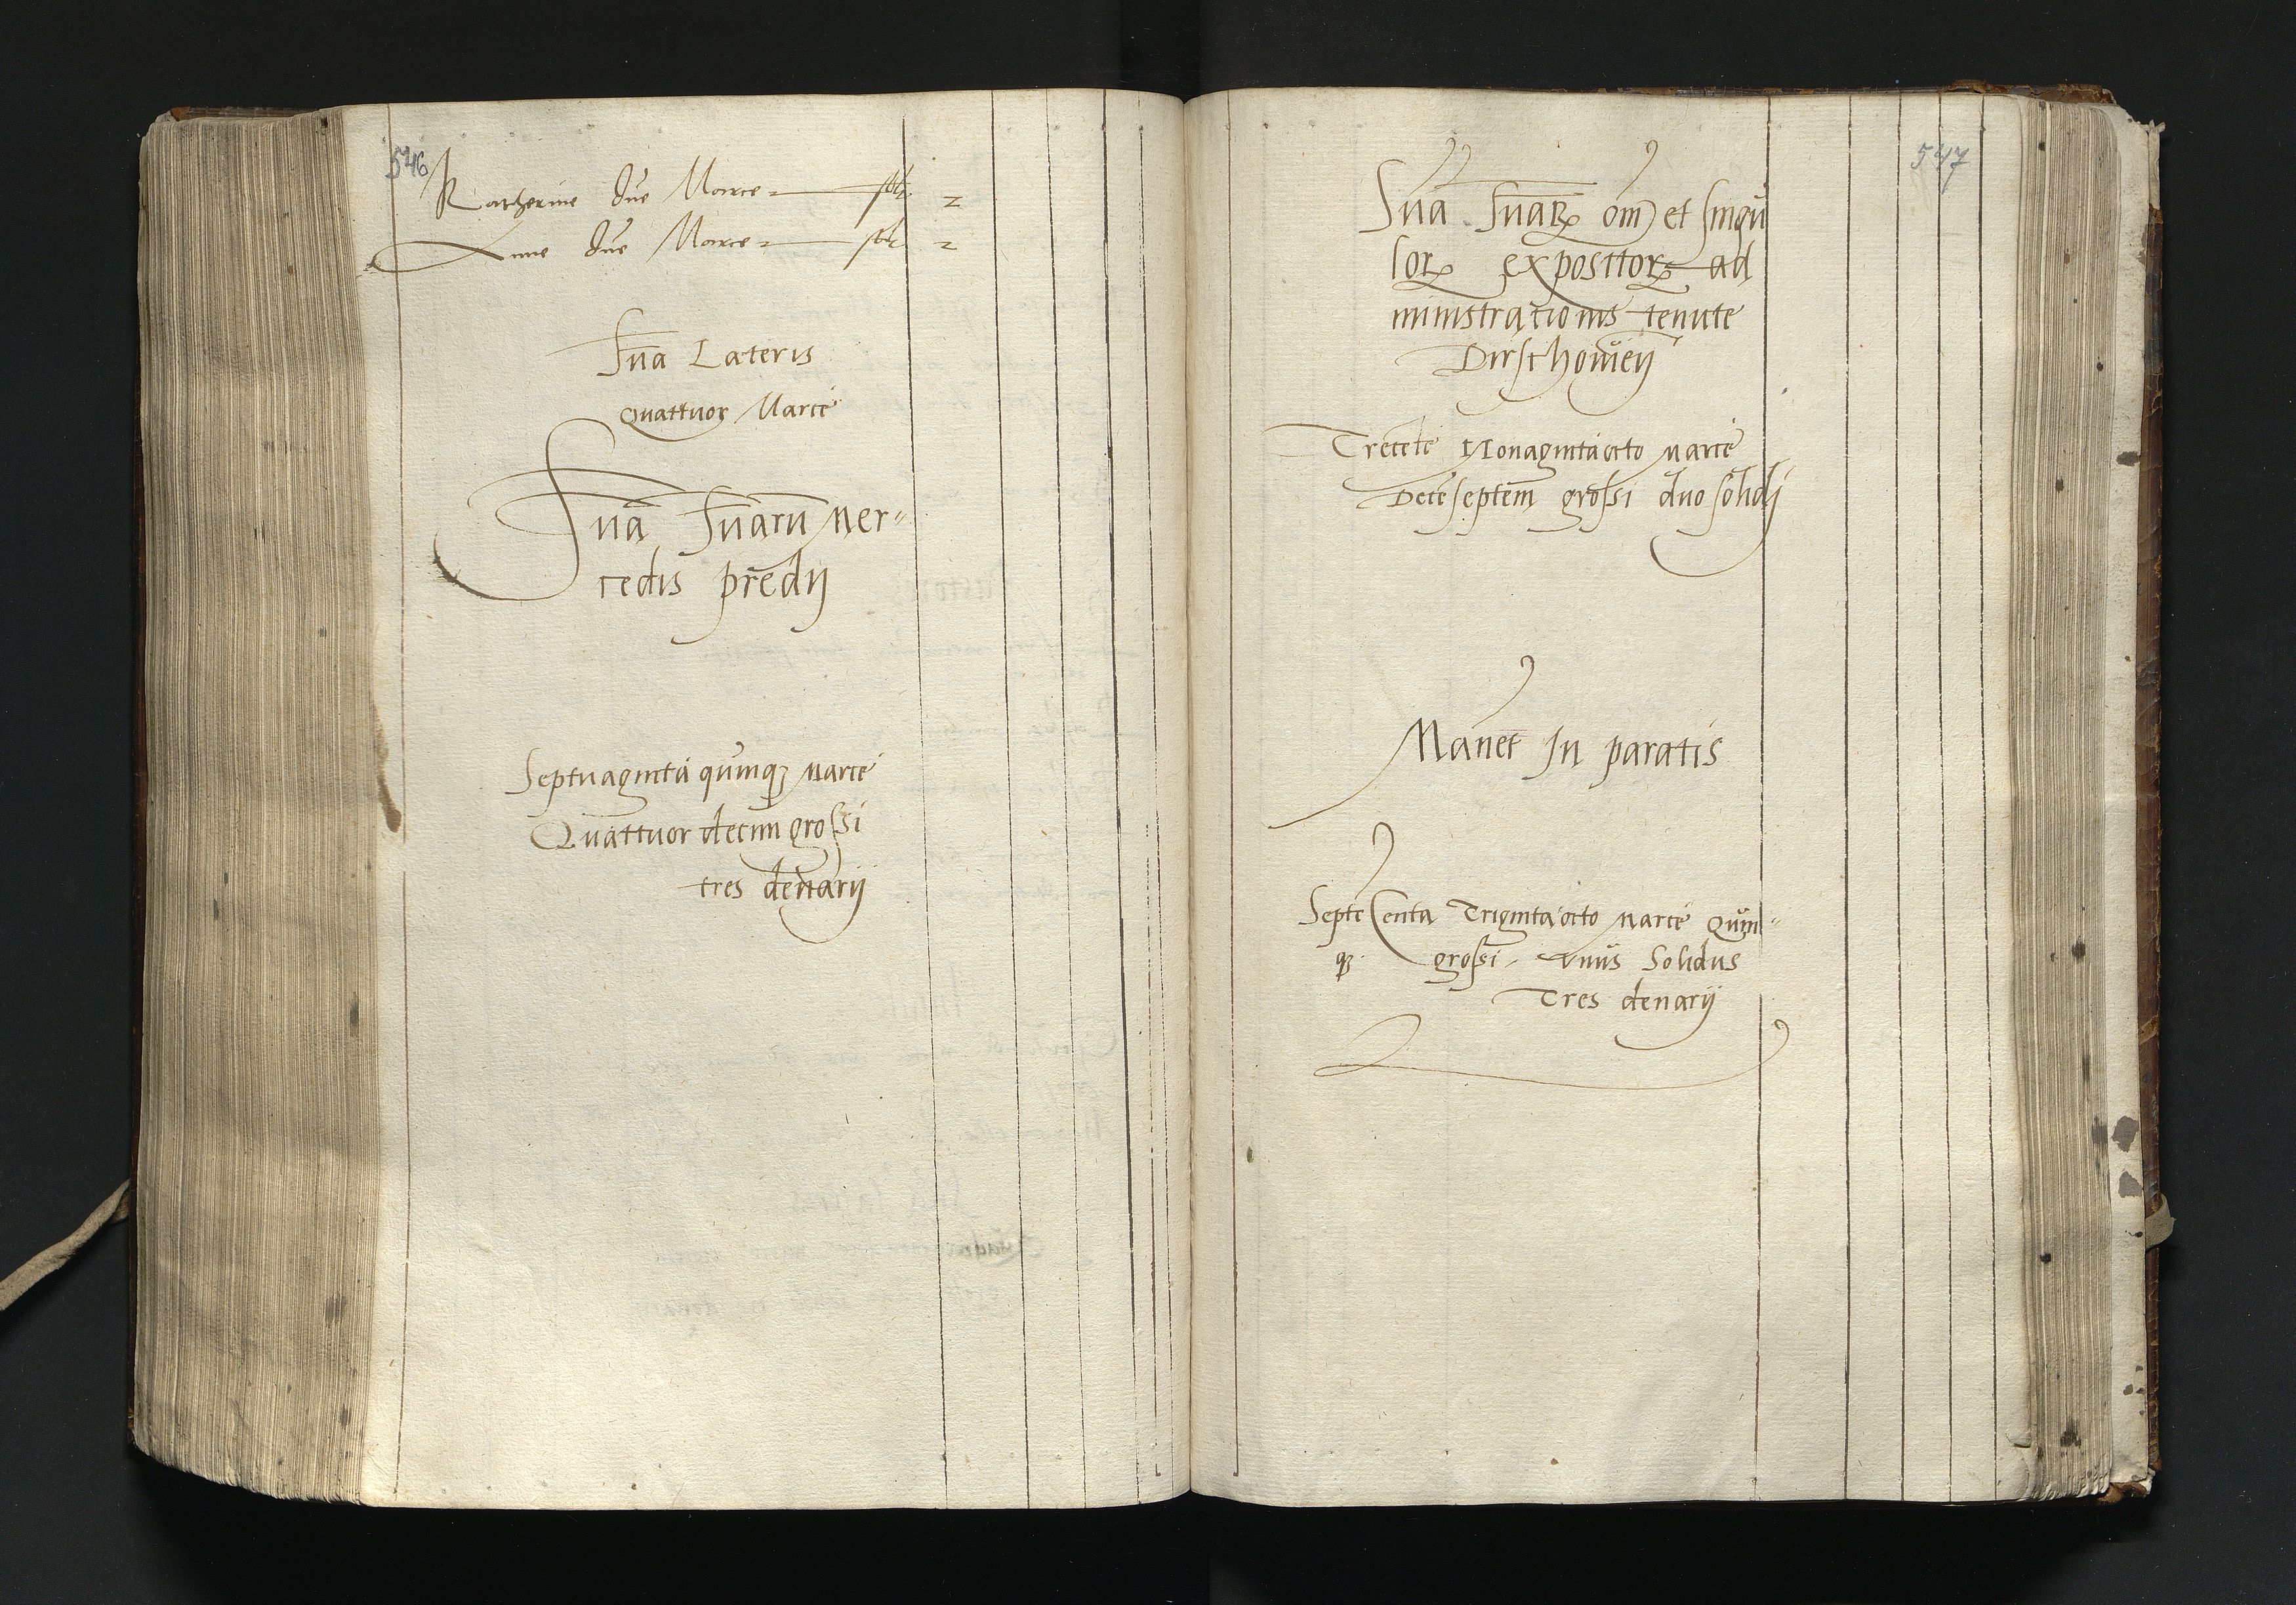 546
Katherine due Marce - solt. 2
Anne due Marce - solt 2
Sūa Lateris
Quattuor Marce
Sūa Sūarū Mer=
cedis predij
Septuaginta quinqꝫ Marce
Quattuor decim grossi
tres denarij
547
Sūa Sūarꝝ om̄ et singu
lorꝝ expositorꝝ ad
ministrationis tenute
Dirschouieň
Trecēte Nonagintaocto Marce
Deceseptem grossi duo solidj
Manet In paratis
Septecenta Trigintaocto Marce Quin=
qꝫ grossi, vnus Solidus
Tres denarij